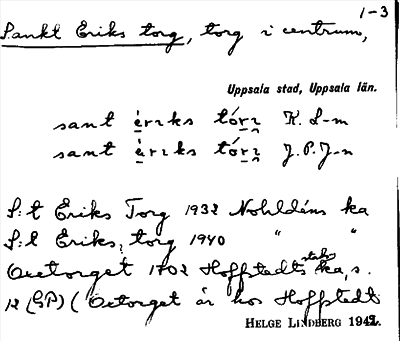 1-3
Sankt Eriks torg, torg i centrum,
Uppsala stad, Uppsala län.
sant èrıks tórı̣ K. L-m
sant èrıks tórı̣ J.P.J-n
S:t Eriks Torg 1932 Nohldéns ka
S:t Eriks, torg 1940 " "
Oxetorget 1702 Hoffstedts stads ka, s.
12 (GP) ( Oxtorget är hos Hoffstedt
HELGE LINDBERG 1942.